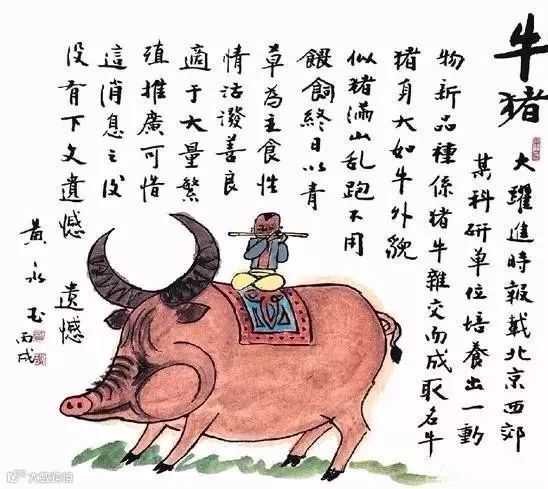 牛猪
大躍進時報載北京西郊
某科研单位培養出一動
物新品種係猪牛雜交而成取名牛
猪身大如牛外貌
似猪滿山乱跑不用
餵飼終日以青
草為主食性
情活潑善良
適于大量繁
殖推廣可惜
這消息之後
没有下文遺憾 遺憾
黄永玉 丙戌
大数跨境